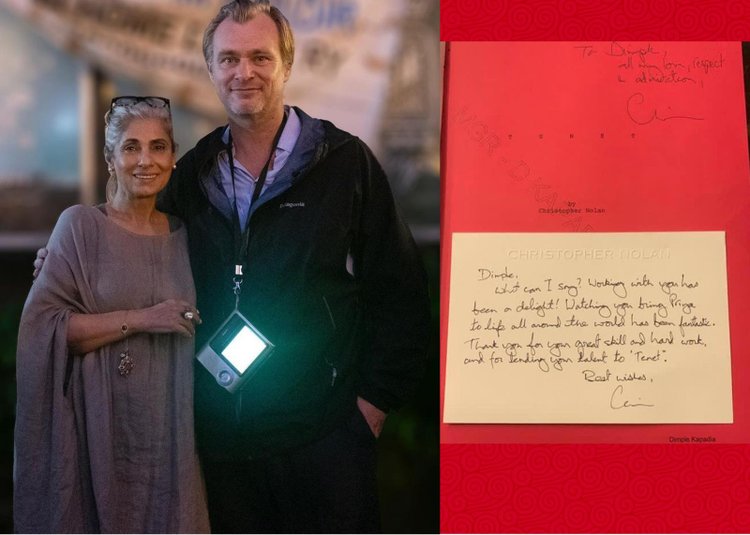 patagonia
To Dimple,
all my love, respect
& admiration,
Chris
T E N E T
by
Christopher Nolan
CHRISTOPHER NOLAN
Dimple,
What can I say? Working with you has
been a delight! Watching you bring Priya
to life all around the world has been fantastic.
Thank you for your great skill and hard work,
and for lending your talent to "Tenet".
Best wishes,
Chris
Dimple Kapadia